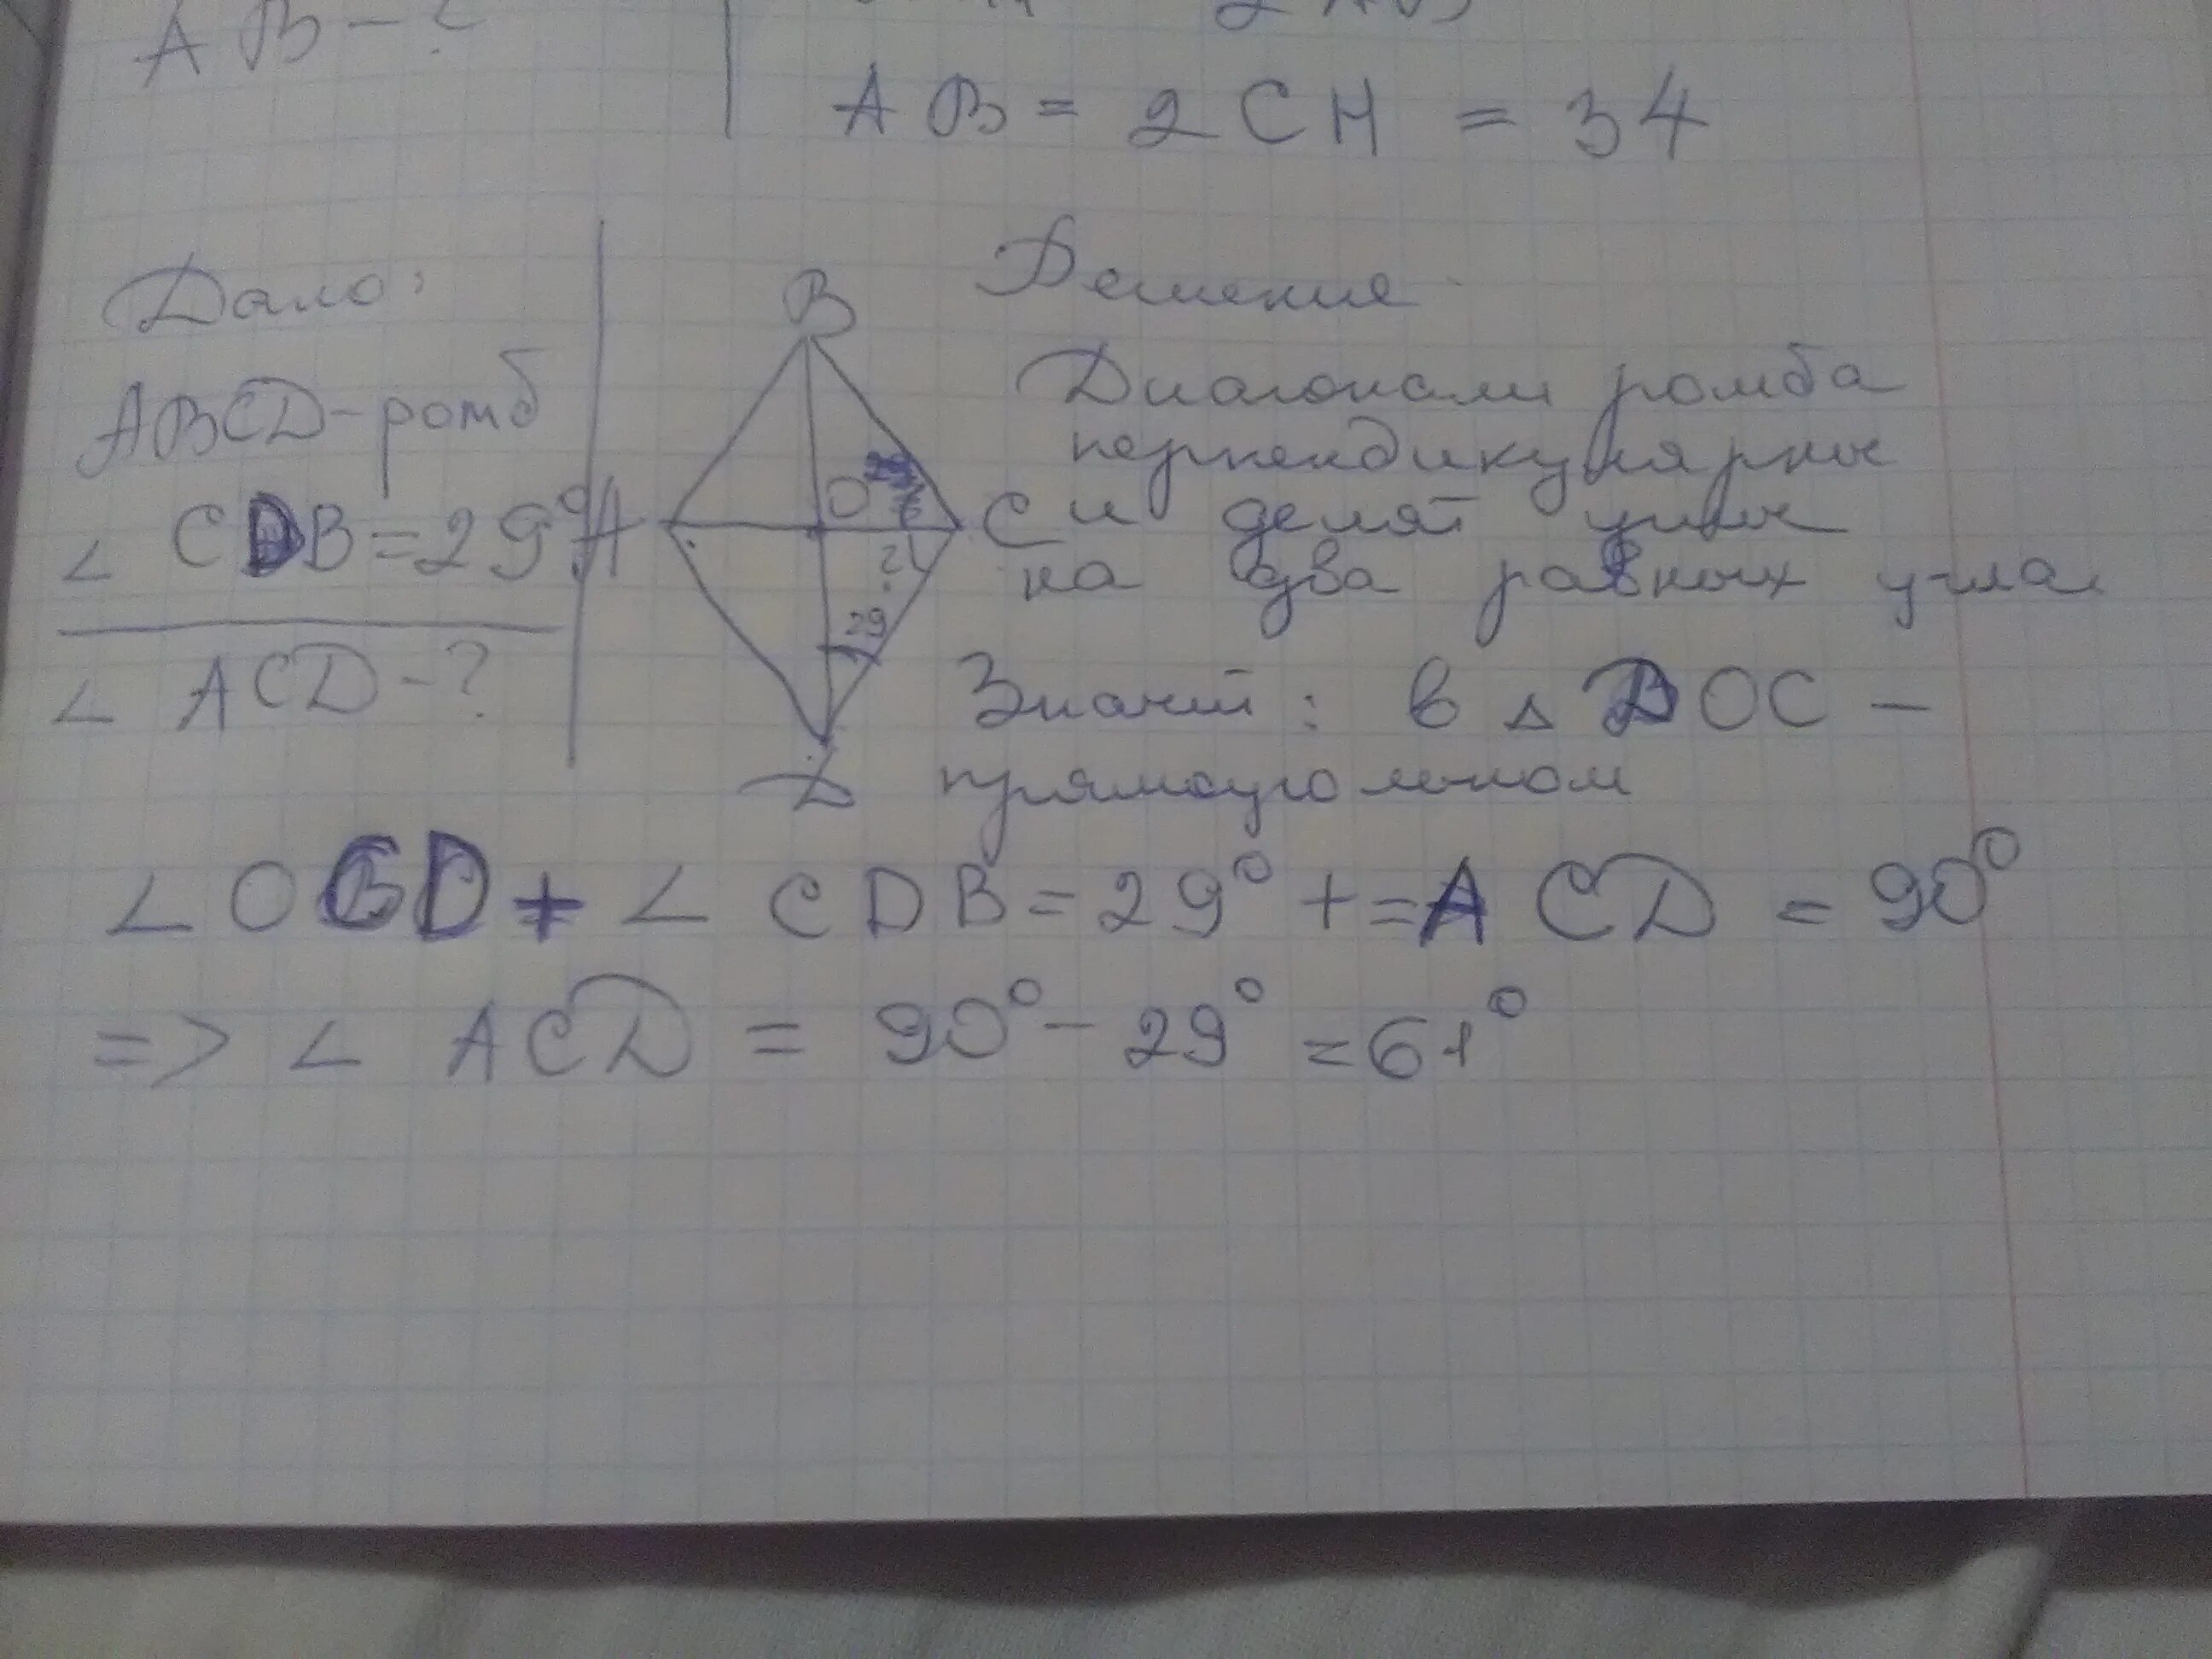 AB - ?
AB = 2CH = 34
Дано:
ABCD - ромб
∠ CDB = 29°
∠ ACD - ?
B
A
O
C
?
29
D
Решение
Диагонали ромба
перпендикулярные
и делят углы
на два равных угла
Значит: в △ DOC -
прямоугольном
∠ OCD + ∠ CDB = 29° + = ACD = 90°
=> ∠ ACD = 90° - 29° = 61°